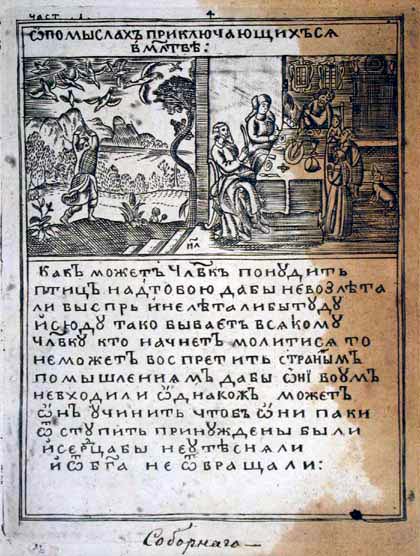 ЧАСТ
Ѡ ПОМЫСЛАХЪ ПРИКЛЮЧАЮЩИХЪСЯ
В МЛТВѢ:
КАКЪ МОЖЕТЪ ЧЛВКЪ ПОНУДИТЬ
ПТИЦЪ НАД ТОБОЮ ДАБЫ НЕВОЗЛЕТА
ЛИ ВЫСПРЬ И НЕЛЕТАЛИБЫ ТУДУ
И СЮДУ ТАКО БЫВАЕТЪ ВСЯКОМУ
ЧЛВКУ КТО НАЧНЕТЪ МОЛИТИСЯ ТО
НЕМОЖЕТЪ ВОСПРЕТИТЬ СТРАННЫМЪ
ПОМЫШЛЕНИЯМЪ ДАБЫ ѠНІ ВОУМЪ
НЕВХОДИЛИ Ѡ҆ДНАКОЖЪ МОЖЕТЪ
Ѡ҆НЪ УЧИНИТЬ ЧТОБЪ Ѡ҆НИ ПАКИ
ѾСТУПИТЬ ПРИНУЖДЕНЫ БЫЛИ
И СЕРДЦАБЫ НЕУТѢСНЯЛИ
И Ѿ БГА НЕ ѾВРАЩАЛИ:
Соборнаго